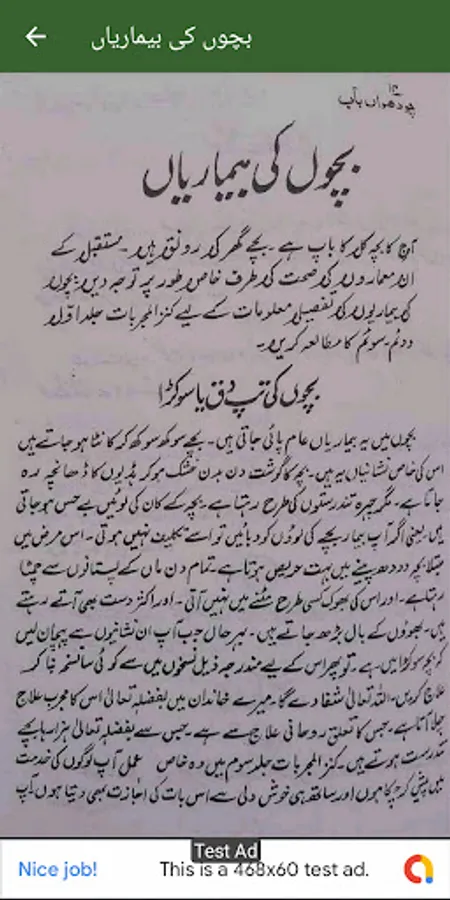 بچوں کی بیماریاں
چودھواں باب
بچوں کی بیماریاں
آج کا بچہ کل کا باپ ہے۔ بچے گھر کی رونق ہیں۔ مستقبل کے
ان معماروں کی صحت کی طرف خاص طور پر توجہ دیں۔ بچوں
کی بیماریوں کی تفصیلی معلومات کے لیے کنز المجربات جلد اول
دوئم۔ سوئم کا مطالعہ کریں۔
بچوں کی تپ دق یا سوکڑا
بچوں میں یہ بیماریاں عام پائی جاتی ہیں۔ بچے سوکھ سوکھ کر کانٹا ہو جاتے ہیں
اس کی خاص نشانیاں یہ ہیں۔ بچہ کا گوشت دن بدن خشک ہو کر ہڈیوں کا ڈھانچہ رہ
جاتا ہے۔ مگر چہرہ تندرستوں کی طرح رہتا ہے۔ بچہ کے کان کی لوئیں بے حس ہو جاتی
ہیں۔ یعنی اگر آپ بیمار بچے کی لوؤں کو دبائیں تو اسے تکلیف نہیں ہوتی۔ اس مرض میں
مبتلا بچہ دودھ پینے میں بہت حریص ہوتا ہے۔ تمام دن ماں کے پستانوں سے چمٹا
رہتا ہے۔ اور اس کی بھوک کسی طرح مٹنے میں نہیں آتی۔ اور اکثر دست بھی آتے رہتے
ہیں۔ بھوؤں کے بال بڑھ جاتے ہیں۔ بہر حال جب آپ ان نشانیوں سے پہچان لیں
کہ بچہ سوکڑا میں ہے۔ تو پھر اس کے لیے مندرجہ ذیل نسخوں میں سے کوئی سا نسخہ بنا کر
علاج کریں۔ اللہ تعالیٰ شفا دے گا۔ میرے خاندان میں بفضلہ تعالیٰ اس کا مجرب علاج
چلا آتا ہے۔ جس کا تعلق روحانی علاج سے ہے۔ جس سے بفضلہ تعالیٰ ہزارہا بچے
تندرست ہوتے ہیں۔ کنز المجربات جلد سوم میں وہ خاص عمل آپ لوگوں کی خدمت
میں پیش کر چکا ہوں اور ساتھ ہی خوش دلی سے اس بات کی اجازت بھی دیتا ہوں آپ
Test Ad
Nice job! This is a 468x60 test ad.